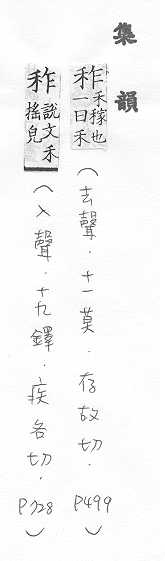 集韻
秨禾稼也一曰禾(去聲.十一莫.存故切.P499)
秨說文禾搖皃(入聲.十九鐸.疾各切.P728)